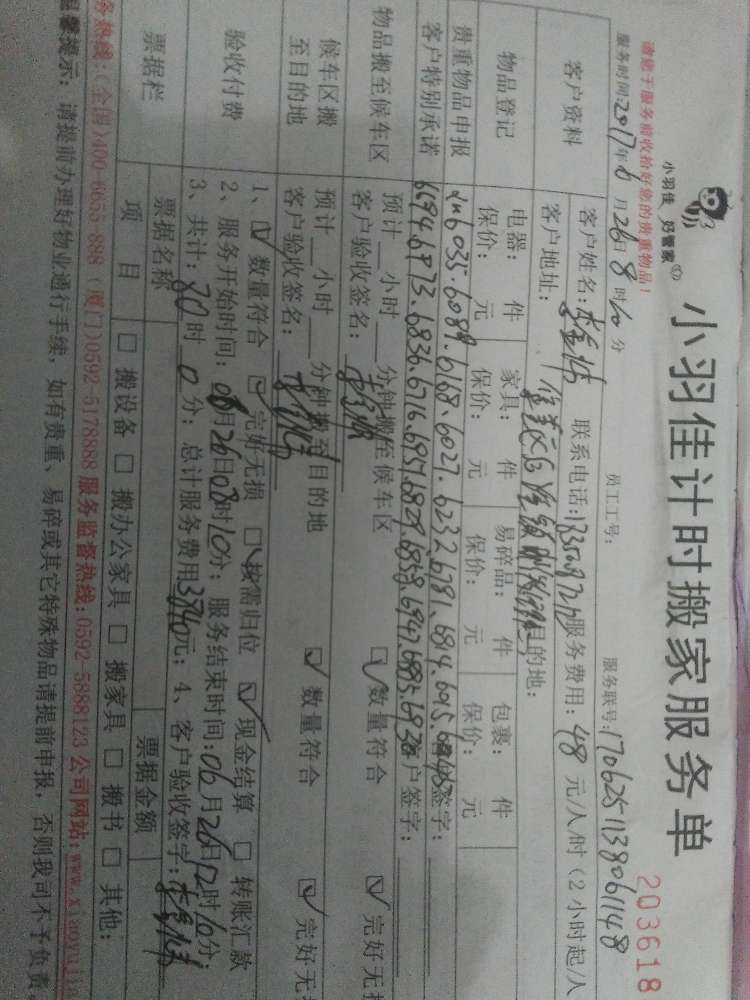 请您于服务前收拾好您的贵重物品！
小羽佳 好管家
小羽佳计时搬家服务单
203618
服务时间:2017年6月26日8时10分 员工工号: 服务联号:170625113806148
客户资料
客户姓名: 联系电话: 服务费用:48元/人/时(2小时起/人
客户地址: 目的地:
物品登记
电器: 件 家具: 件 易碎品: 件 包裹: 件
保价: 元 保价: 元 保价: 元 保价: 元
贵重物品申报 6035.6089.6168.6027.6232 6781.6814.695. 客户签字:
客户特别承诺 6694.6973.6836.6716.6957.6829.6858.6947.6885.6893 客户签字:
物品搬至候车区
预计__小时__分钟搬至候车区 ☑数量符合 ☑完好无损
客户验收签名:
候车区搬至目的地
预计__小时__分钟搬至目的地 ☑数量符合 ☑完好无损
客户验收签名:
验收付费
1、☑数量符合 ☑完好无损 ☑按需归位 ☑现金结算 □转账汇款
2、服务开始时间:06月26日08时10分；服务结束时间:06月26日12时10分；
3、共计:80时0分；总计服务费用3840元；4、客户验收签字:
票据栏
票据名称 票据金额
项目 □搬设备 □搬办公家具 □搬家具 □搬书 □其他:
务热线:(全国)400-6655-888 (厦门)0592-5178888 服务监督热线:0592-5888123 公司网站:www.xiaoyujia
温馨提示: 请提前办理好物业通行手续，如有贵重、易碎或其它特殊物品请提前申报，否则我司不予负责。